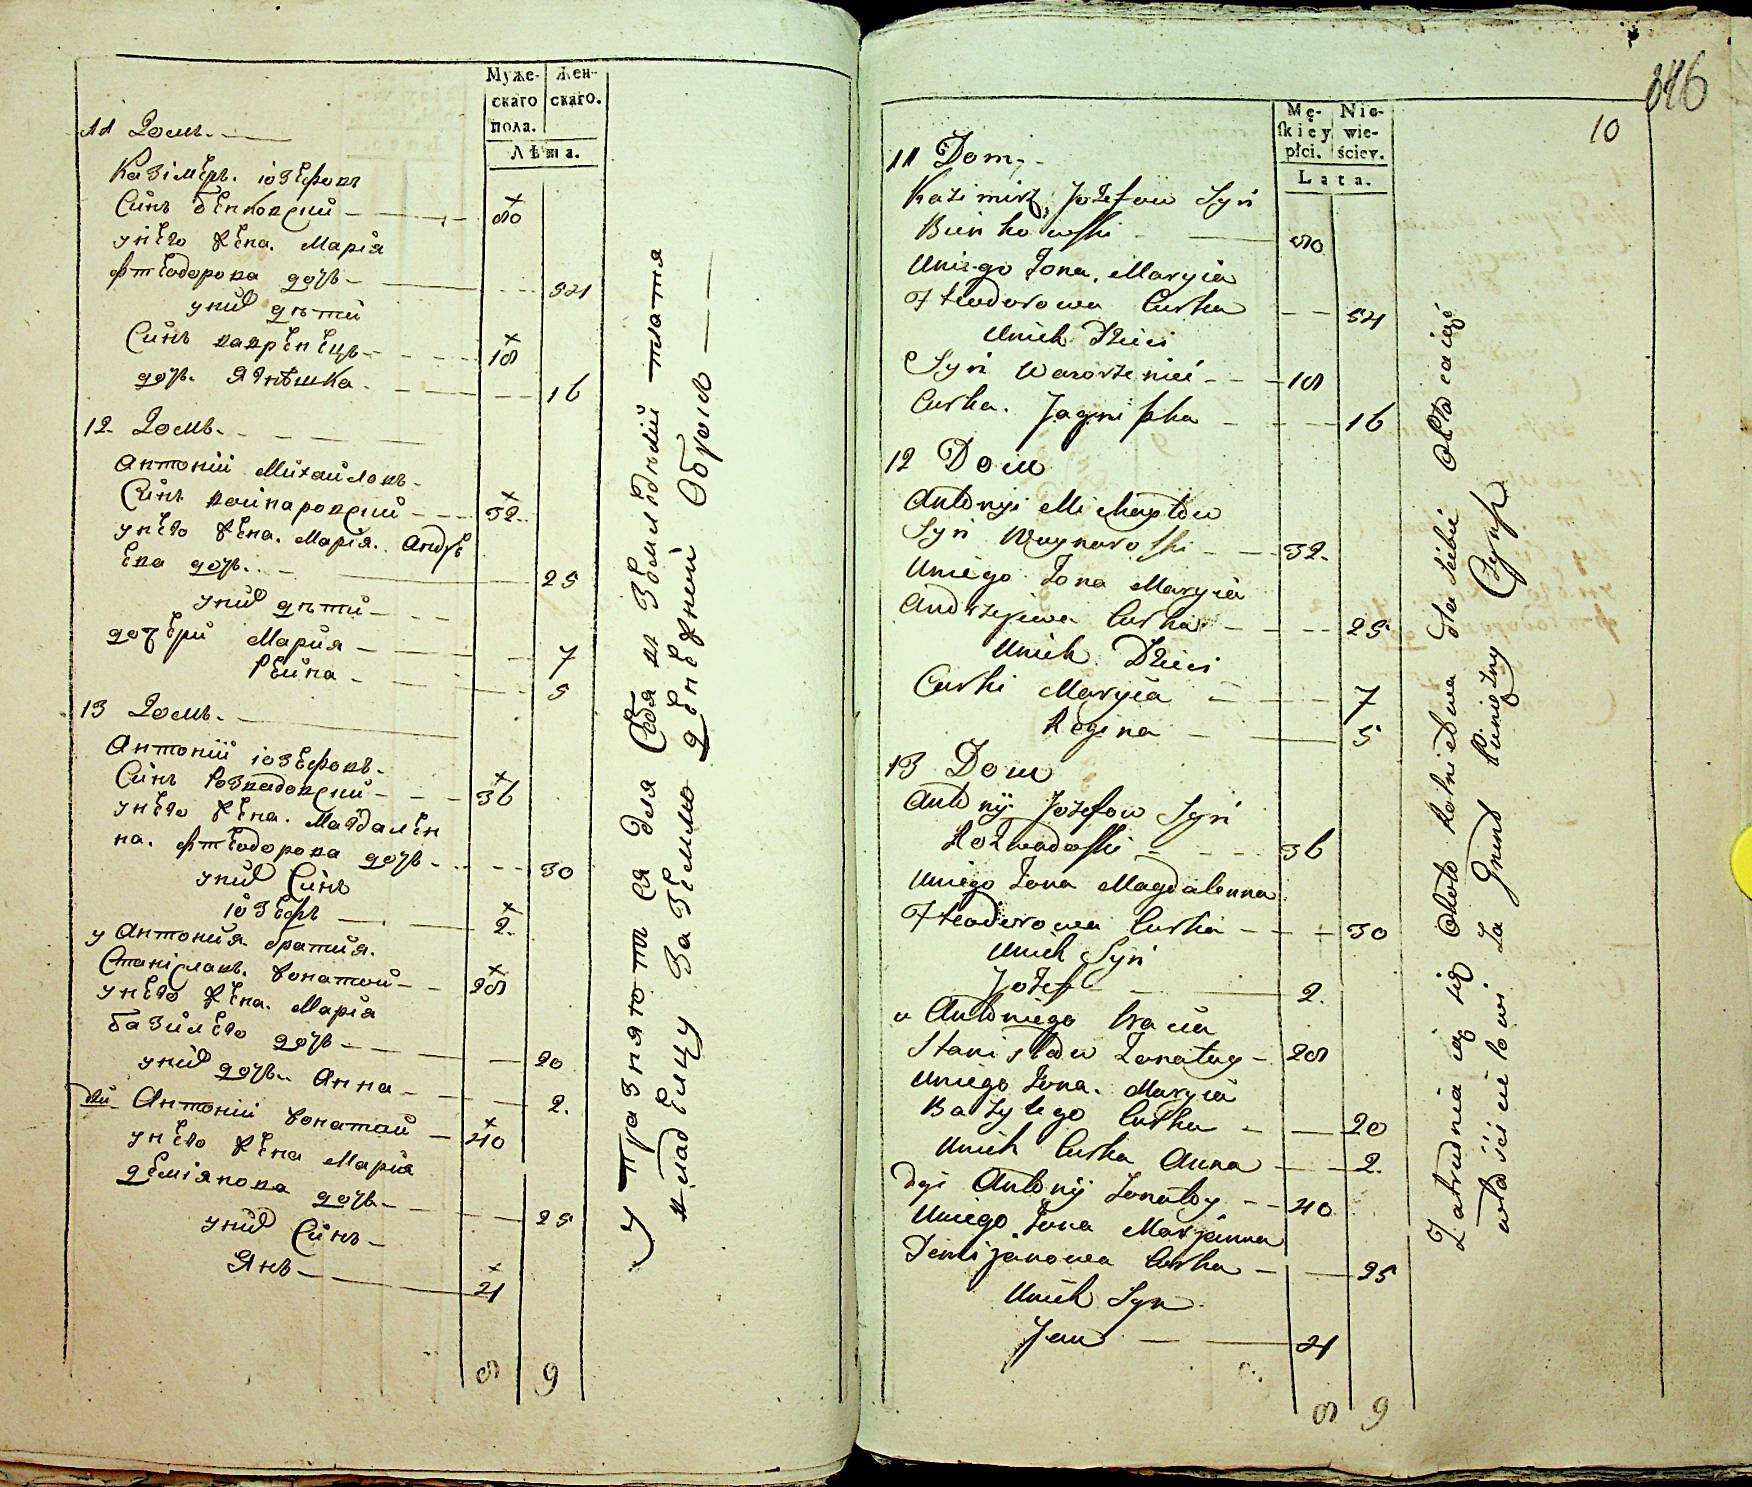 Муже-
скаго
пола.
Жен-
скаго.
Лѣта.
11 Домъ.
Казімѣръ. іозефовъ
Синъ бенковский 80
унего жена. Марія
фтеодорова дочь 54
унихъ дѣти
Синъ вавренецъ 18
дочь. Ягнѣшка. 16
12 Домъ.
Антоній Михайловъ
Синъ войнаровский 32
унего жена. Марія. Андре
ева дочь. 25
унихъ дѣти
дочери Мария 7
Реина 5
13 Домъ.
Антоній іозефовъ.
Синъ Розвадовский 36
унего жена. Магдален
на. фтеодорова дочь 30
унихъ Синъ
іозефъ 2.
у Антония братия.
Станіславъ. Жонатой 28
унего жена. Марія
базилего дочь 20
унихъ дочь. Анна 2.
дій Антоній Жонатой 40
унего жена Мария
демиянова дочь 25
унихъ Синъ
Янъ 4
8 9
Упразняютъ ся для Себя въ Земледелій платя
владелцу За Землю денежній Оброкъ
846
10
Mę-
skiey
płci.
Nie-
wie-
ściey.
Lata.
11 Dom
Kazimirz, Jozefow Syn
Bienkowski 80
Uniego Zona. Maryia
Fteodorowa Curka 54
Unich Dzieci
Syn Wawrzeniec 18
Curka. Jagniszka 16
12 Dom
Antonyi Michayłow
Syn Waynaroski 32.
Uniego Zona Maryia
Andrzejewa Curka 25
Unich Dzieci
Curki Maryia 7
Regina 5
13 Dom
Antonij Jozefow Syn
Rozwadoski 36
Uniego Zona Magdalenna
Fteodorowa Curka 30
Unich Syn
Jozef 2.
u Antoniego bracia
Stanisław Zonaty 28
Uniego Zona. Maryia
Bazylego Curka 20
Unich Curka Anna 2.
dyi Antonij Zonaty 40
Uniego Zona Marjanna
Demijanowa Curka 25
Unich Syn
Jan 4
8 9
Zatrudniaią się około Rolnictwa dla siebie opłacaiąc
właścicielowi za Grunt Pieniężny Czynsz